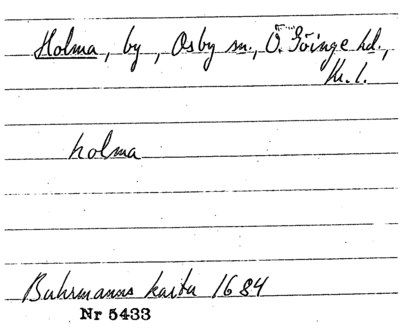 Holma, by, Osby sn., Ö. Göinge hd.,
Kr. l.
holma
Buhrmanns karta 1684
Nr 5433